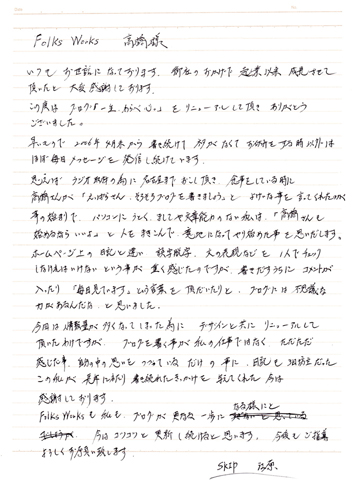 Folks Works 高橋様
いつもお世話になっております。御社のおかげで 創業以来 成長させて
頂いたと 大変感謝しております。
この度は ブログ「一生わらべ心。」をリニューアルして頂き ありがとう
ございました。
早いもので 2006年4月末から書き続けて 外がなくてお休みをする時以外は
ほぼ毎日メッセージを発信し続けています。
思えば ラジオ取材の為に名古屋までおこし頂き、食事をしている時に
高橋さんから「えばらさん、そろそろブログを書きましょう」と よけいな事を言ってくれたのが
事の始まりで、パソコンにうとく、ましてや文章能力のない私は、「高橋さんも
始めるならいいよ」と人をまきこんで、意地になってやり始めた事を思いだします。
ホームページ上の日記と違い 誤字脱字、文の表現などを1人でチェック
しなければいけないという事が 重く感じたのですが、書きだすうちに コメントが
入ったり「毎日見ています」という言葉を頂だいたりと、ブログには不思議な
力があるんだなと思いました。
今回は情報量が多くなってしまった為に デザインと共にリニューアルして
頂いたわけですが、ブログを書く事が私の仕事ではなく、ただただ
感じた事、頭の中の思いをつづっているだけの事に、日記も3日坊主だった
この私が 長年にわたり書き続れたきっかけを与えてくれた 今は
感謝しております。
Folks Worksも私も、ブログが更なる一歩になる様にと
今はコツコツと更新し続けると思います。今後もご指導
よろしくお願い致します。
SKIP